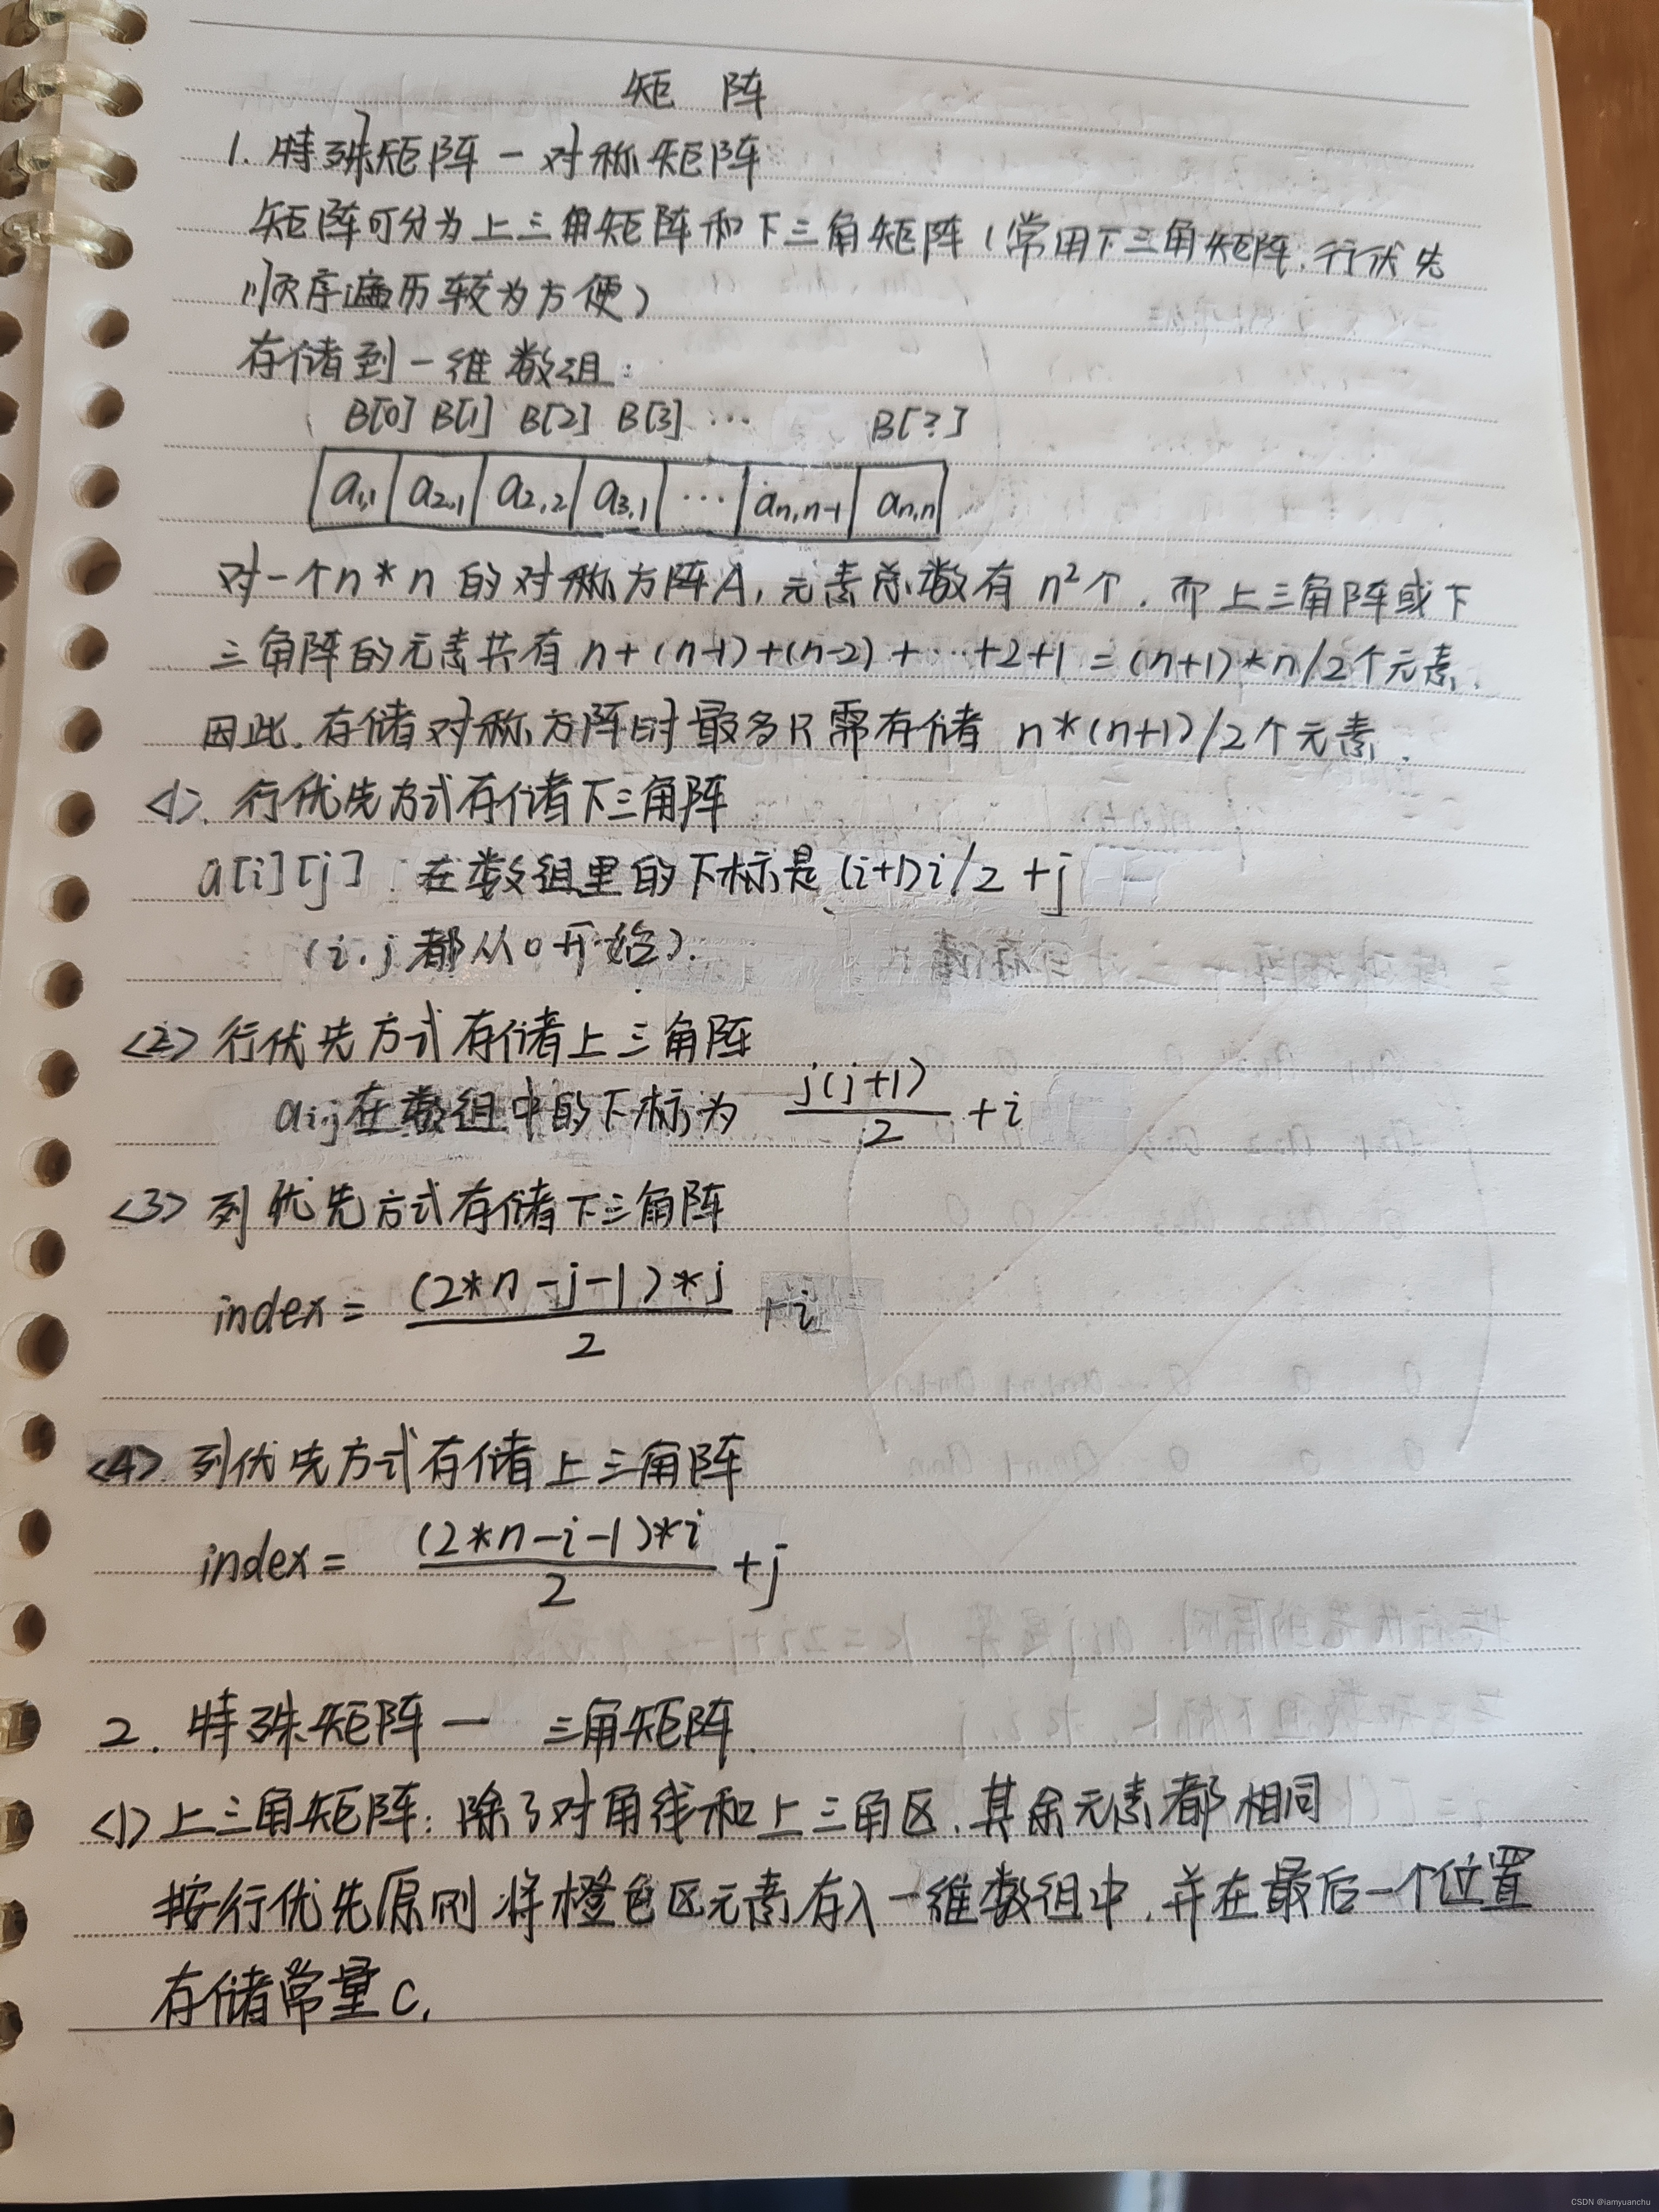 矩 阵
1. 特殊矩阵 — 对称矩阵
矩阵可分为上三角矩阵和下三角矩阵(常用下三角矩阵,行优先
顺序遍历较为方便)
存储到一维数组:
B[0] B[1] B[2] B[3] … B[?]
a1,1 a2,1 a2,2 a3,1 … an,n-1 an,n
对一个n*n的对称方阵A,元素总数有n²个,而上三角阵或下
三角阵的元素共有n+(n-1)+(n-2)+…+2+1=(n+1)*n/2个元素.
因此,存储对称方阵时最多只需存储 n*(n+1)/2个元素.
<1>. 行优先方式存储下三角阵
a[i][j] 在数组里的下标是(i+1)i/2+j
(i.j都从0开始).
<2> 行优先方式存储上三角阵
ai,j在数组中的下标为 j(j+1)/2 +i
<3> 列优先方式存储下三角阵
index= (2*n-j-1)*j/2 +i
<4>. 列优先方式存储上三角阵
index= (2*n-i-1)*i/2 +j
2. 特殊矩阵 — 三角矩阵.
<1> 上三角矩阵:除了对角线和上三角区,其余元素都相同
按行优先原则将橙色区元素存入一维数组中,并在最后一个位置
存储常量c.
CSDN @iamyuanchu